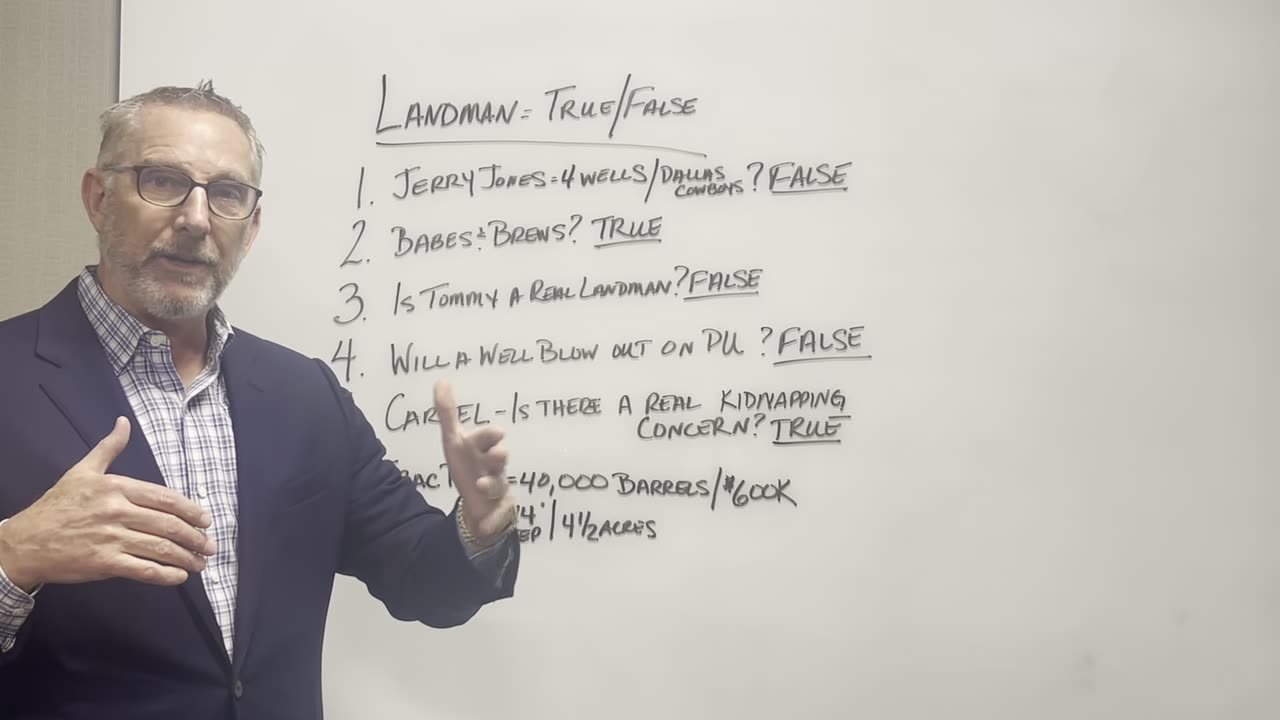 LANDMAN = TRUE/FALSE
1. JERRY JONES = 4 WELLS/DALLAS COWBOYS? FALSE
2. BABES & BREWS? TRUE
3. IS TOMMY A REAL LANDMAN? FALSE
4. WILL A WELL BLOW OUT ON PU? FALSE
CARTEL - IS THERE A REAL KIDNAPPING
CONCERN? TRUE
= 40,000 BARRELS/$600K
14' | 4 1/2 ACRES